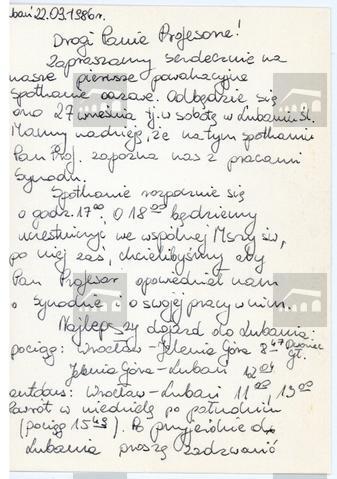 bań 22.09.1986 r.
Drogi Panie Profesorze!
Zapraszamy serdecznie na
nasze pierwsze powakacyjne
spotkanie oazowe. Odbędzie się
ono 27 września tj. w sobotę w Lubaniu Śl.
Mamy nadzieję, że na tym spotkaniu
Pan Prof. zapozna nas z pracami
Synodu.
Spotkanie rozpocznie się
o godz. 17⁰⁰. O 18⁰⁰ będziemy
uczestniczyć we wspólnej Mszy św,
po niej zaś, chcielibyśmy aby
Pan Profesor opowiedział nam
o Synodzie i o swojej pracy w nim.
Najlepszy dojazd do Lubania:
pociąg: Wrocław - Jelenia Góra 8⁴⁷ Dworzec Gł.
Jelenia Góra - Lubań 12⁰⁴
autobus: Wrocław - Lubań 11⁰⁰, 13⁰⁰
Powrót w niedzielę po południu
(pociąg 15⁴³). Po przyjeździe do
Lubania proszę zadzwonić